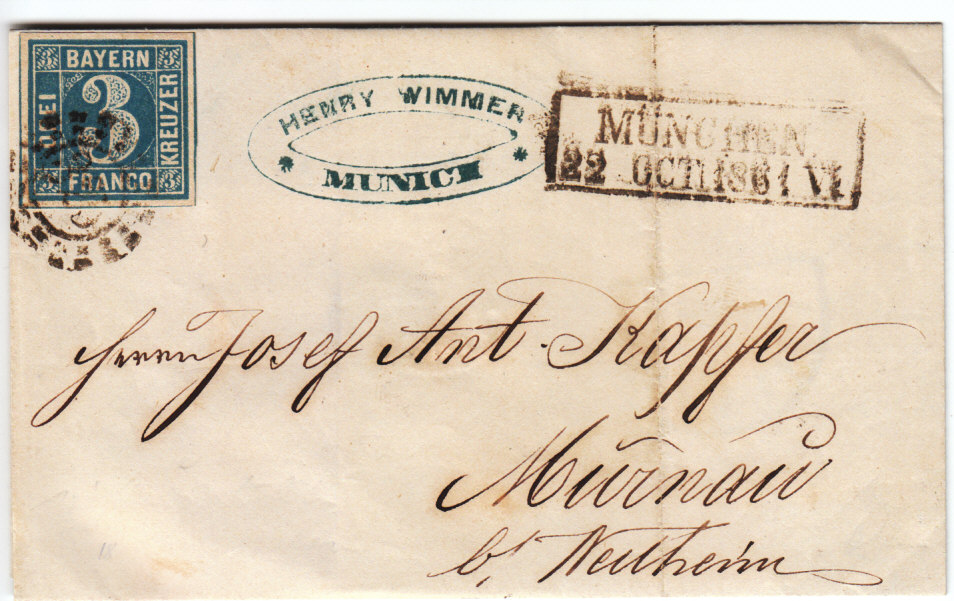 BAYERN
DREI
3
KREUZER
FRANCO
HENRY WIMMER
MUNICH
MÜNCHEN
22 OCT 1861 VI
Herrn Josef Ant. Kapfer
Murnau
b/ Weilheim